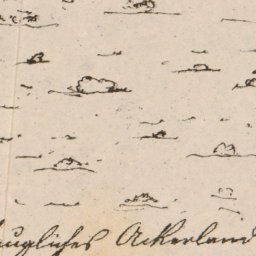 taugliches Ackerland